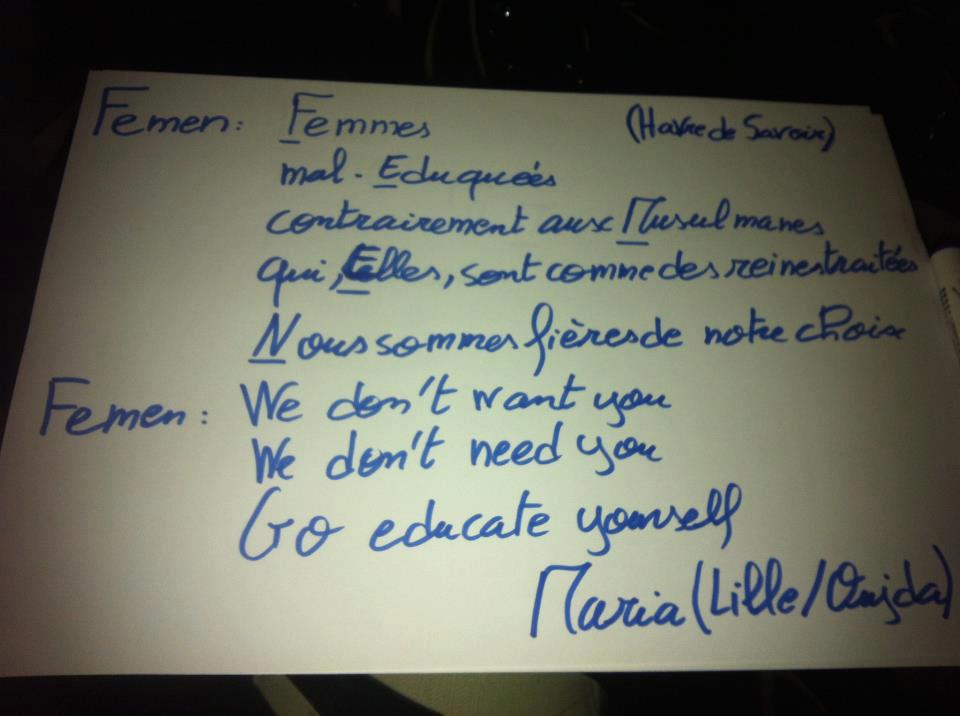 Femen: Femmes (Havre de Savoir)
mal-Eduquées
contrairement aux Musulmanes
qui, Elles, sont comme des reines traitées
Nous sommes fières de notre choix
Femen: We don't want you
We don't need you
Go educate yourself
Maria (Lille/Oujda)